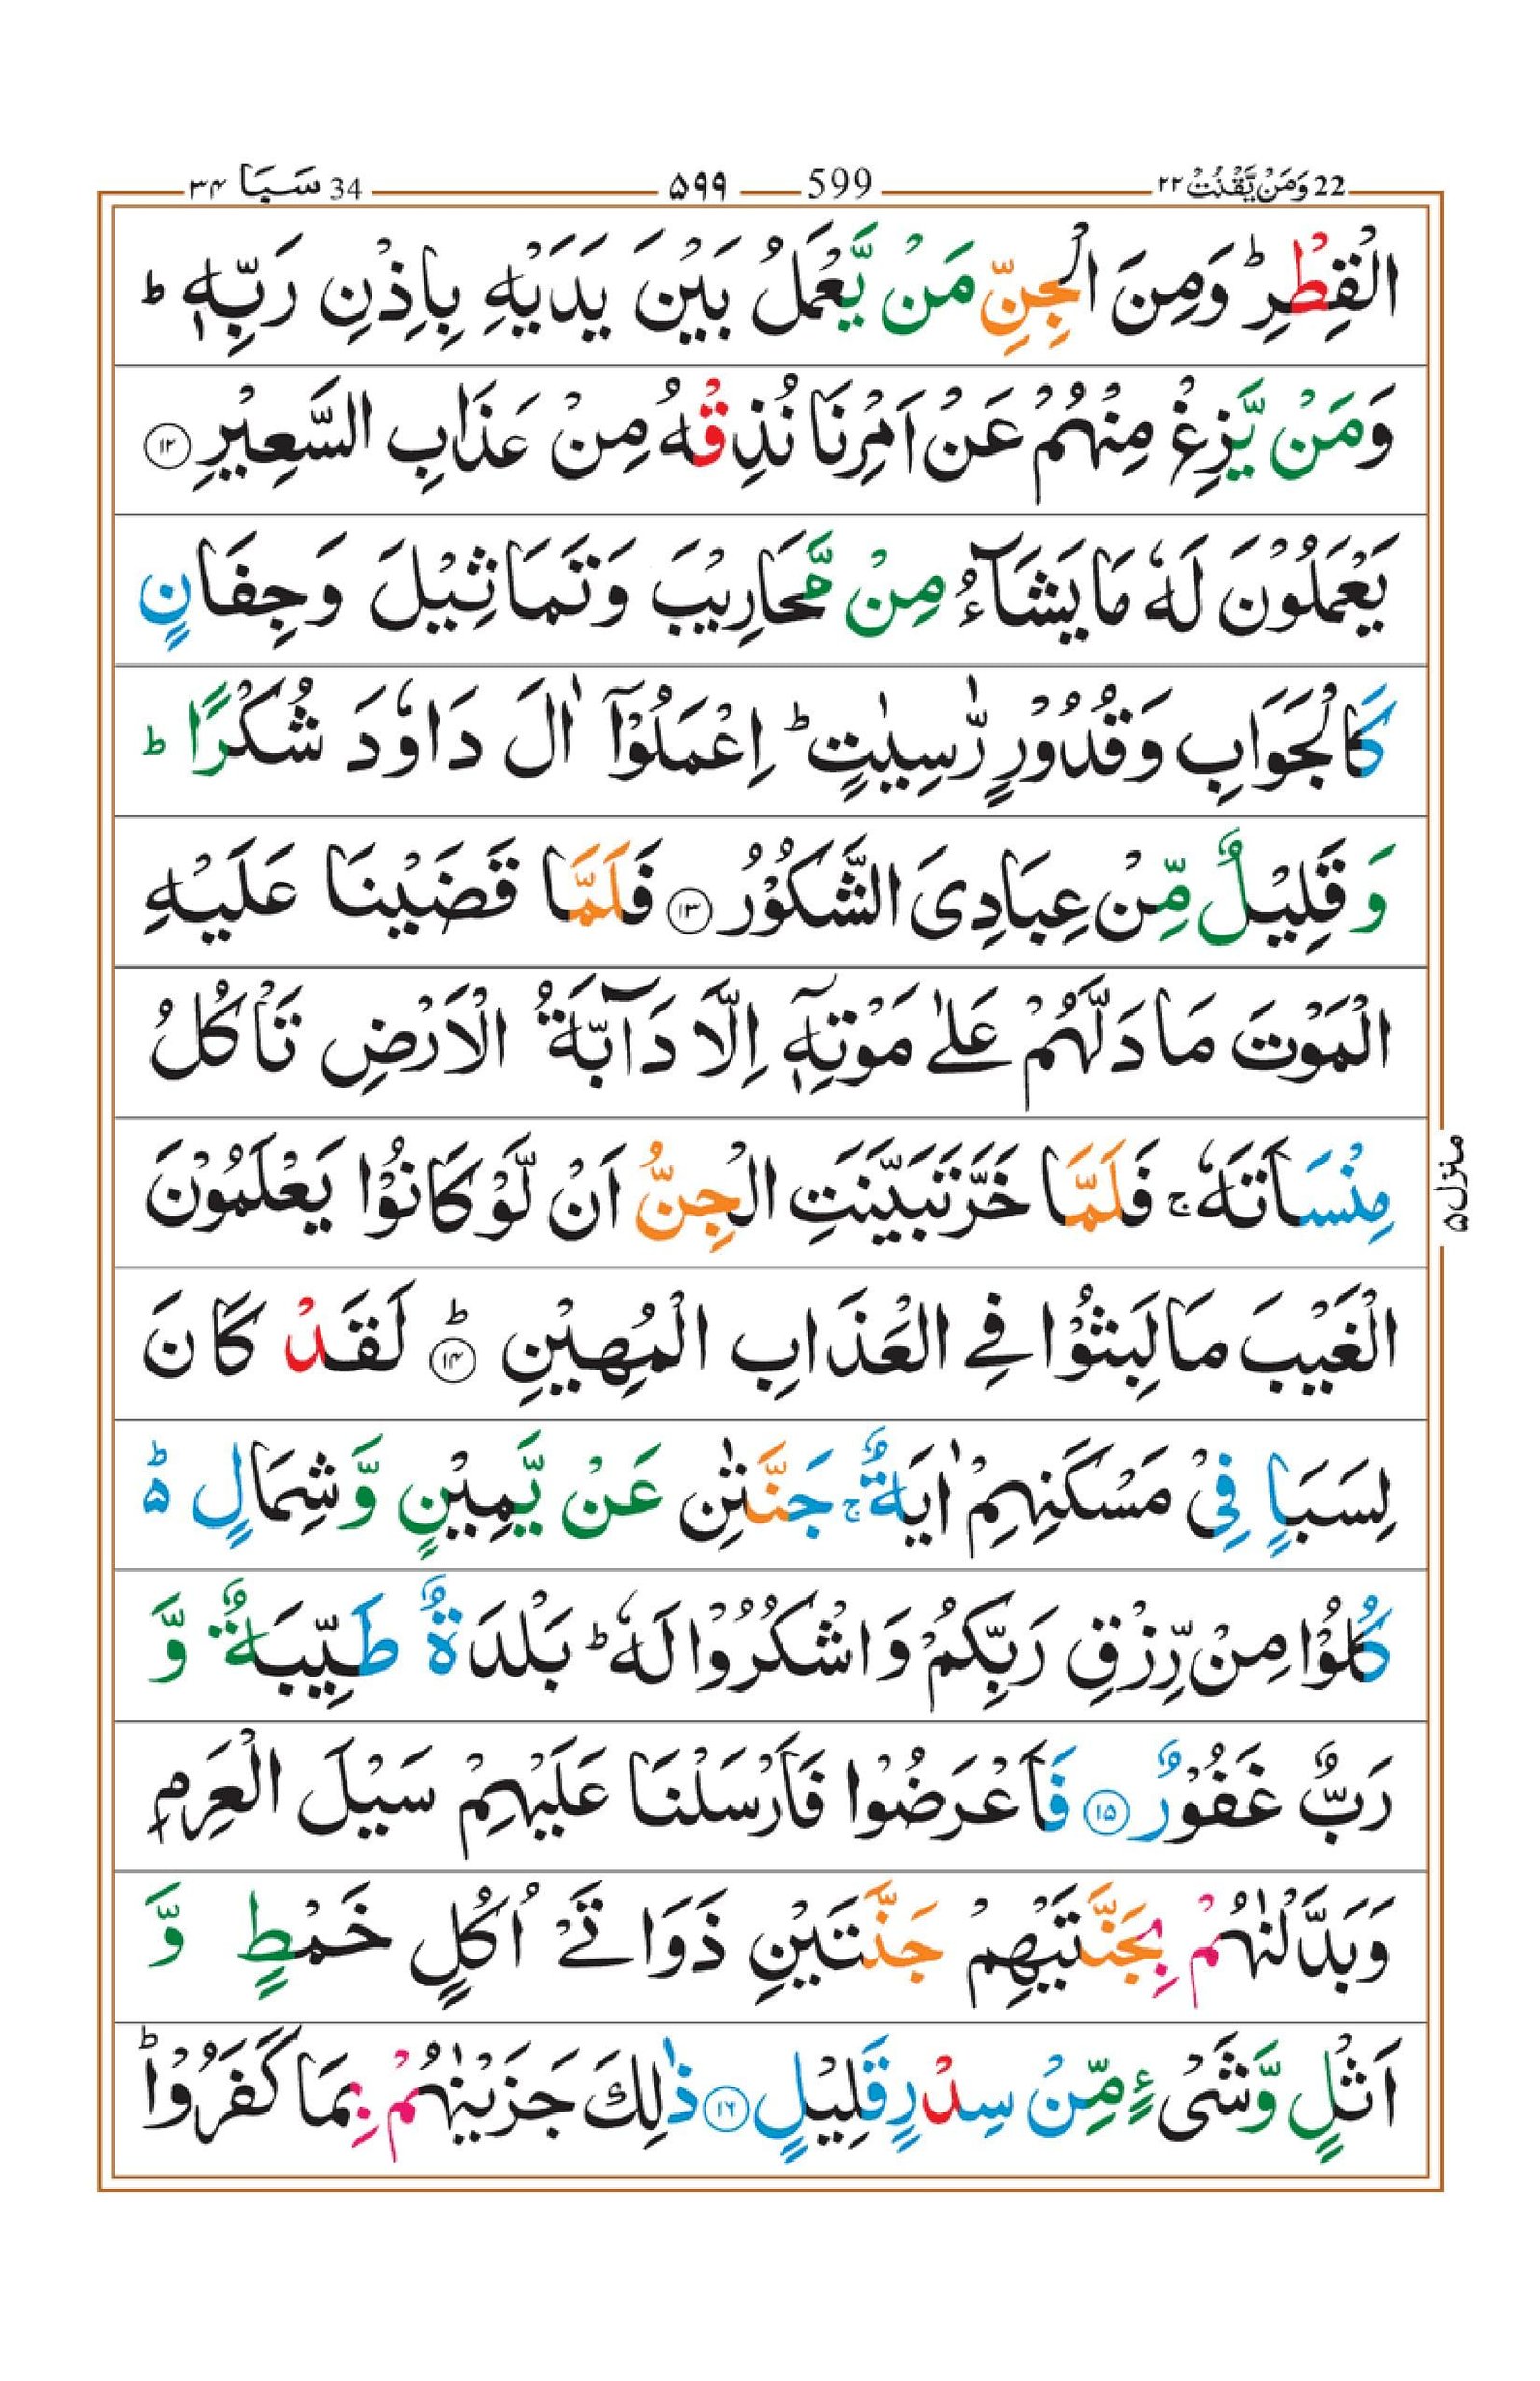 22 وَمَنْ يَّقْنُتْ ٢٢ 599 ۵۹۹ 34 سَبَا ۳۴
الْقِطْرِ ؕ وَمِنَ الْجِنِّ مَنْ يَّعْمَلُ بَيْنَ يَدَيْهِ بِاِذْنِ رَبِّهٖ ؕ
وَمَنْ يَّزِغْ مِنْهُمْ عَنْ اَمْرِنَا نُذِقْهُ مِنْ عَذَابِ السَّعِيْرِ ۱۲
يَعْمَلُوْنَ لَهٗ مَا يَشَآءُ مِنْ مَّحَارِيْبَ وَتَمَاثِيْلَ وَجِفَانٍ
كَالْجَوَابِ وَقُدُوْرٍ رّٰسِيٰتٍ ؕ اِعْمَلُوْۤا اٰلَ دَاوٗدَ شُكْرًا ؕ
وَقَلِيْلٌ مِّنْ عِبَادِيَ الشَّكُوْرُ ۱۳ فَلَمَّا قَضَيْنَا عَلَيْهِ
الْمَوْتَ مَا دَلَّهُمْ عَلٰى مَوْتِهٖۤ اِلَّا دَآبَّةُ الْاَرْضِ تَاْكُلُ
مِنْسَاَتَهٗ ۚ فَلَمَّا خَرَّ تَبَيَّنَتِ الْجِنُّ اَنْ لَّوْ كَانُوْا يَعْلَمُوْنَ
الْغَيْبَ مَا لَبِثُوْا فِي الْعَذَابِ الْمُهِيْنِ ؕ ۱۴ لَقَدْ كَانَ
لِسَبَاٍ فِيْ مَسْكَنِهِمْ اٰيَةٌ ۚ جَنَّتٰنِ عَنْ يَّمِيْنٍ وَّشِمَالٍ ۵ؕ
كُلُوْا مِنْ رِّزْقِ رَبِّكُمْ وَاشْكُرُوْا لَهٗ ؕ بَلْدَةٌ طَيِّبَةٌ وَّ
رَبٌّ غَفُوْرٌ ۱۵ فَاَعْرَضُوْا فَاَرْسَلْنَا عَلَيْهِمْ سَيْلَ الْعَرِمِ
وَبَدَّلْنٰهُمْ بِجَنَّتَيْهِمْ جَنَّتَيْنِ ذَوَاتَيْ اُكُلٍ خَمْطٍ وَّ
اَثْلٍ وَّشَيْءٍ مِّنْ سِدْرٍ قَلِيْلٍ ۱۶ ذٰلِكَ جَزَيْنٰهُمْ بِمَا كَفَرُوْا ؕ
منزل ۵